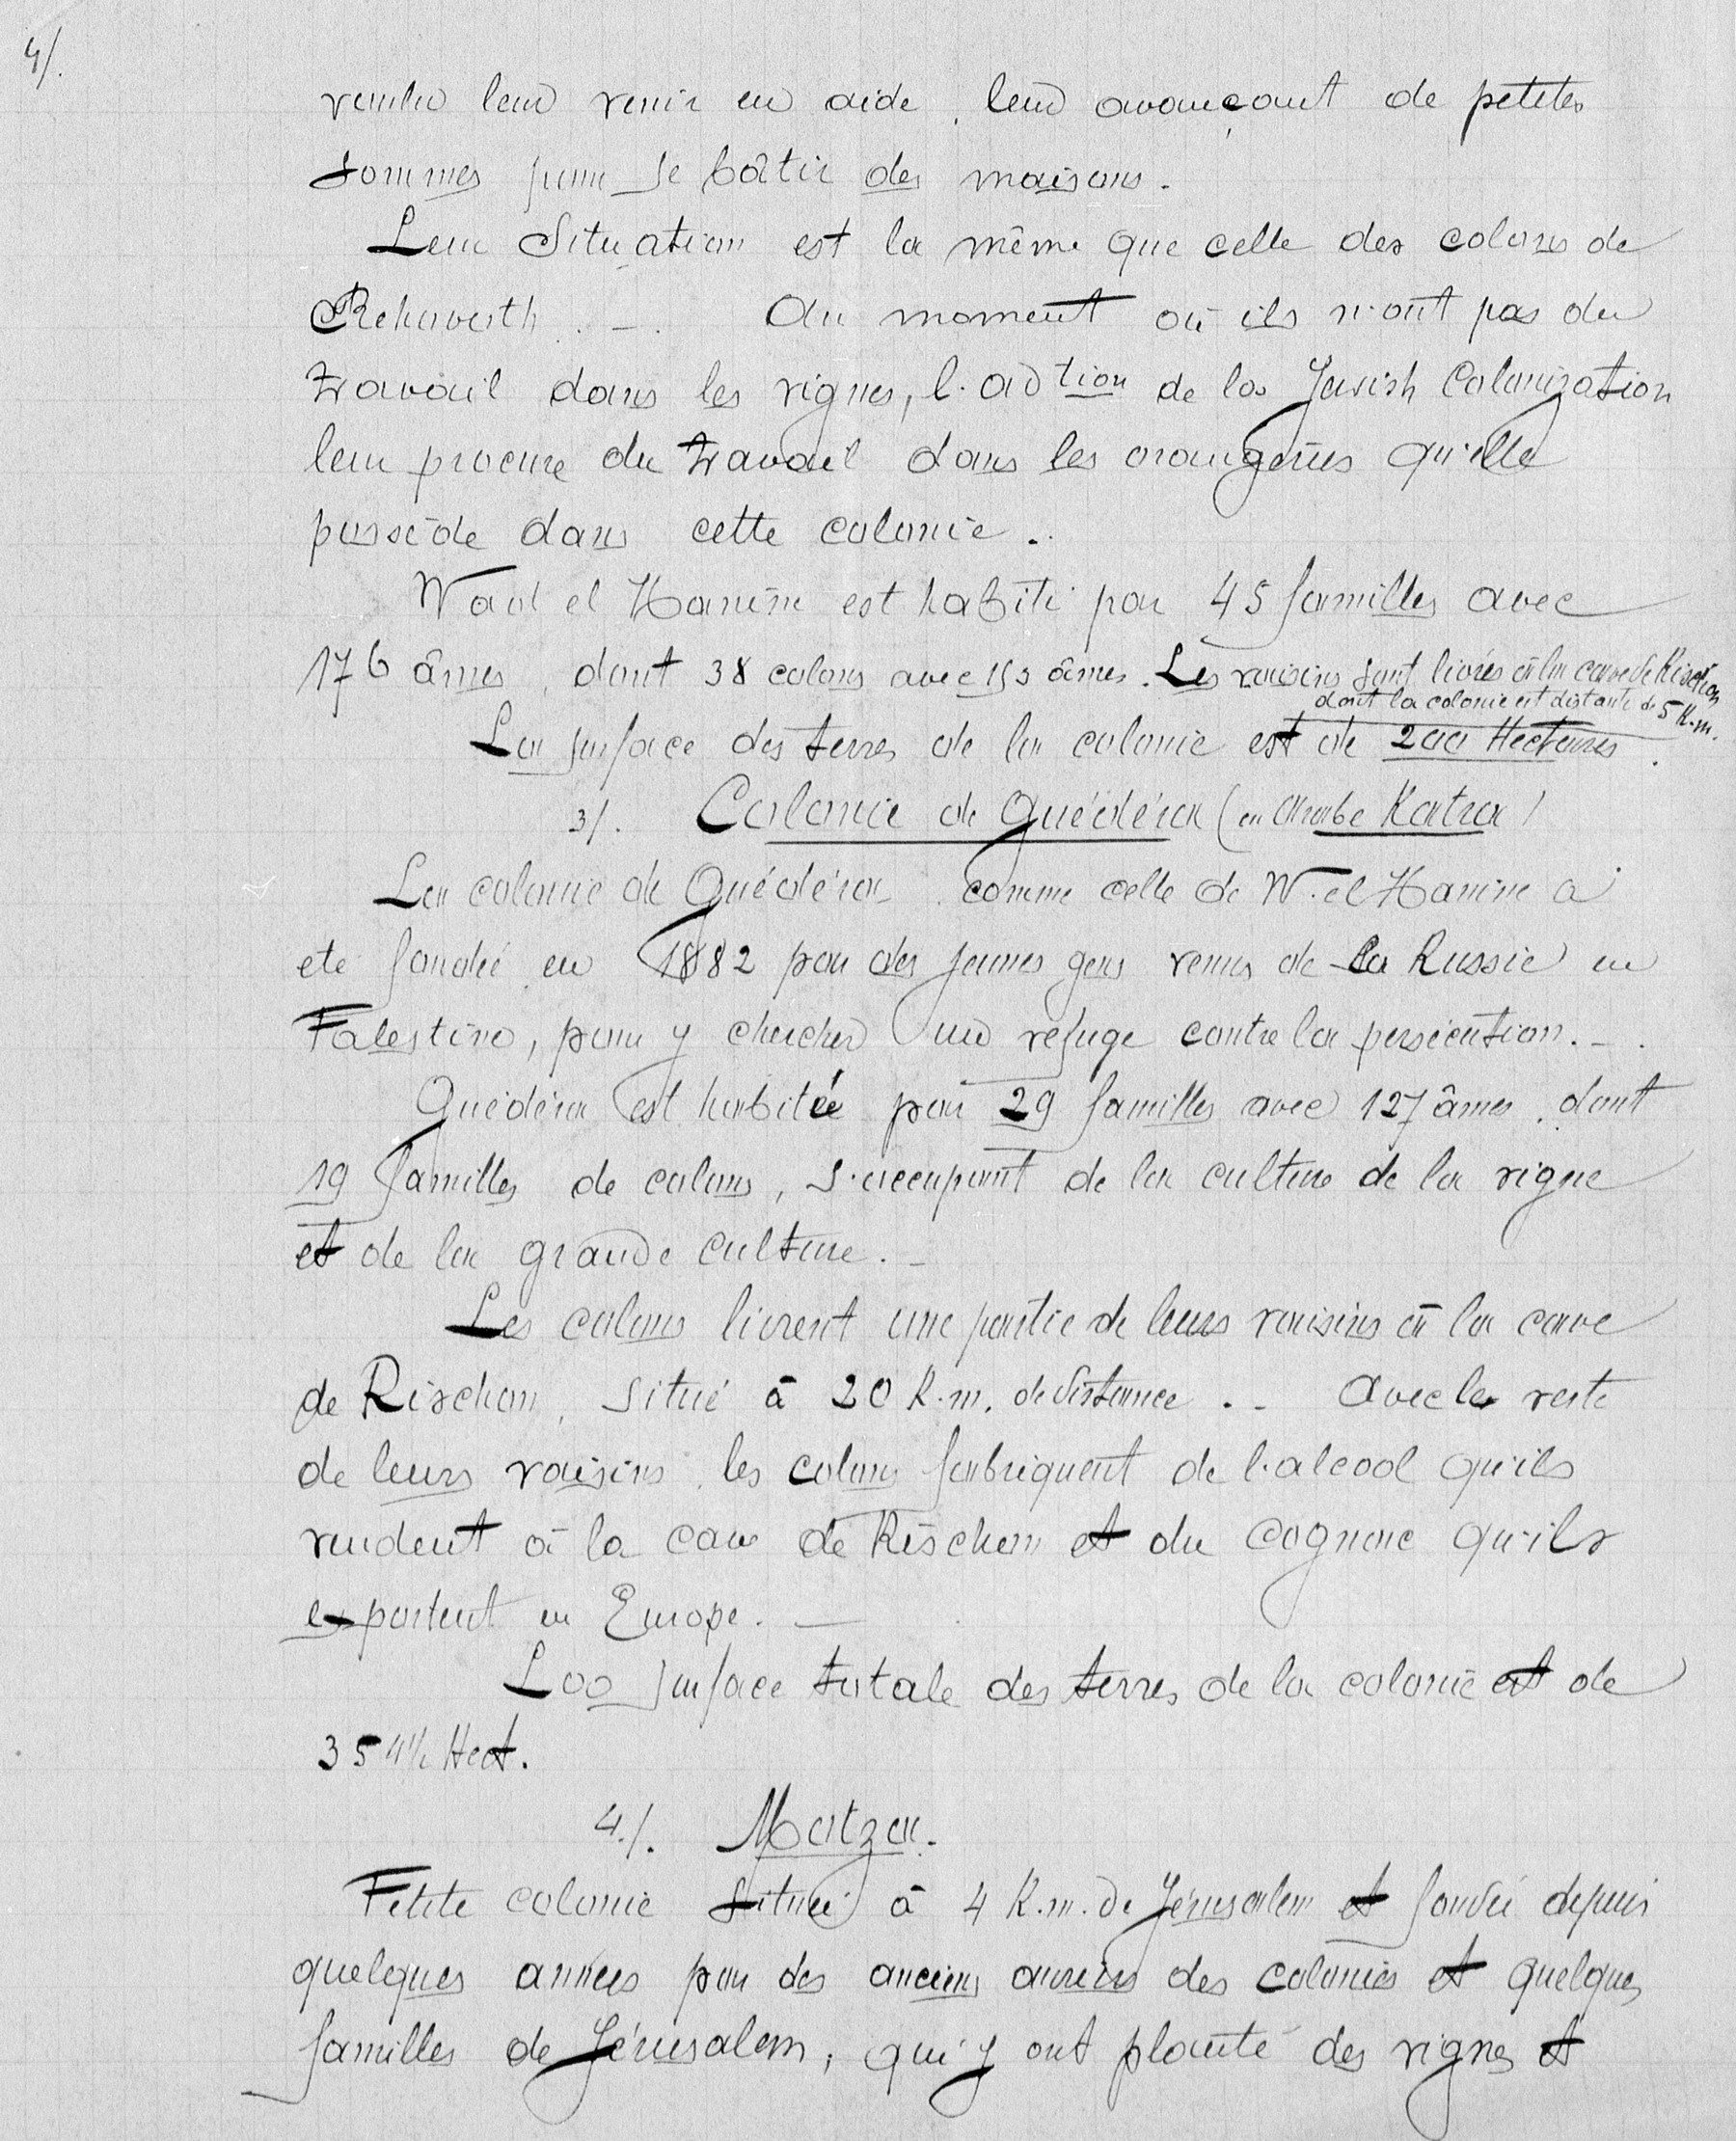 4/.
voulu leur venir en aide, leur avançant de petites
sommes pour se bâtir des maisons.
Leur Situation est la même que celle des colons de
Rehovoth. —. Au moment où ils n'ont pas du
travail dans les vignes, l'adtion de la Jewish Colonization
leur procure du travail dans les orangeries qu'elle
possède dans cette colonie..
Wad el Hanine est habité par 45 familles avec
176 âmes, dont 38 colons avec 153 âmes. Les raisins sont livrés à la cave de Rischon
dont la colonie est distante de 5 K.m.
La surface des terres de la colonie est de 200 Hectares.
3/. Colonie de Guédéra (en Arabe Katra)
La colonie de Guédéra, comme celle de W. el Hanine a
ete fondée en 1882 par des jeunes gens venus de la Russie en
Palestine, pour y chercher un refuge contre la persécution. —.
Guédéra est habitée par 29 familles avec 127 âmes, dont
19 familles de colons, s'occupant de la culture de la vigne
et de la grande culture. —
Les colons livrent une partie de leurs raisins à la cave
de Rischon, situé à 20 K.m. de distance. . — Avec le reste
de leurs raisins, les colons fabriquent de l'alcool qu'ils
vendent à la cave de Rischon et du cognac qu'ils
exportent en Europe. —
La surface totale des terres de la colonie est de
354½ Hect.
4./. Motza.
Petite colonie située à 4 K.m. de Jérusalem et fondée depuis
quelques années par des anciens ouvriers des colonies et quelques
familles de Jérusalem, qui y ont planté des vignes et